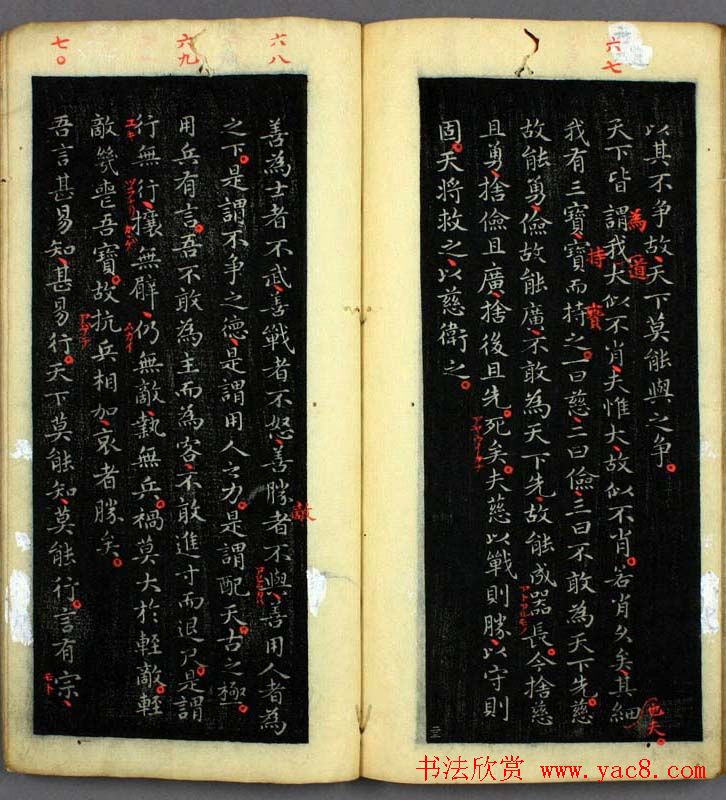 六七
以其不争故、天下莫能與之争。
天下皆謂我大似不肖、夫惟大、故似不肖。若肖久矣、其細
為道
也夫。
我有三寶、寶而持之。一曰慈、二曰儉、三曰不敢為天下先。慈
持
寶
故能勇、儉故能廣、不敢為天下先、故能成器長。今捨慈
アトアルモノ
且勇、捨儉且廣、捨後且先、死矣。夫慈以戰則勝、以守則
固。天将救之、以慈衛之。
六八
善為士者不武、善戰者不怒、善勝者不與、善用人者為
敵
之下。是謂不争之德、是謂用人之力。是謂配天。古之極。
六九
用兵有言。吾不敢為主而為客、不敢進寸而退尺。是謂
行無行、攘無臂、仍無敵、執無兵。禍莫大於輕敵。輕
ユキ
ツラナリ
敵幾喪吾寶。故抗兵相加、哀者勝矣。
七〇
吾言甚易知、甚易行。天下莫能知、莫能行。言有宗、
モト
书法欣赏 www.yac8.com